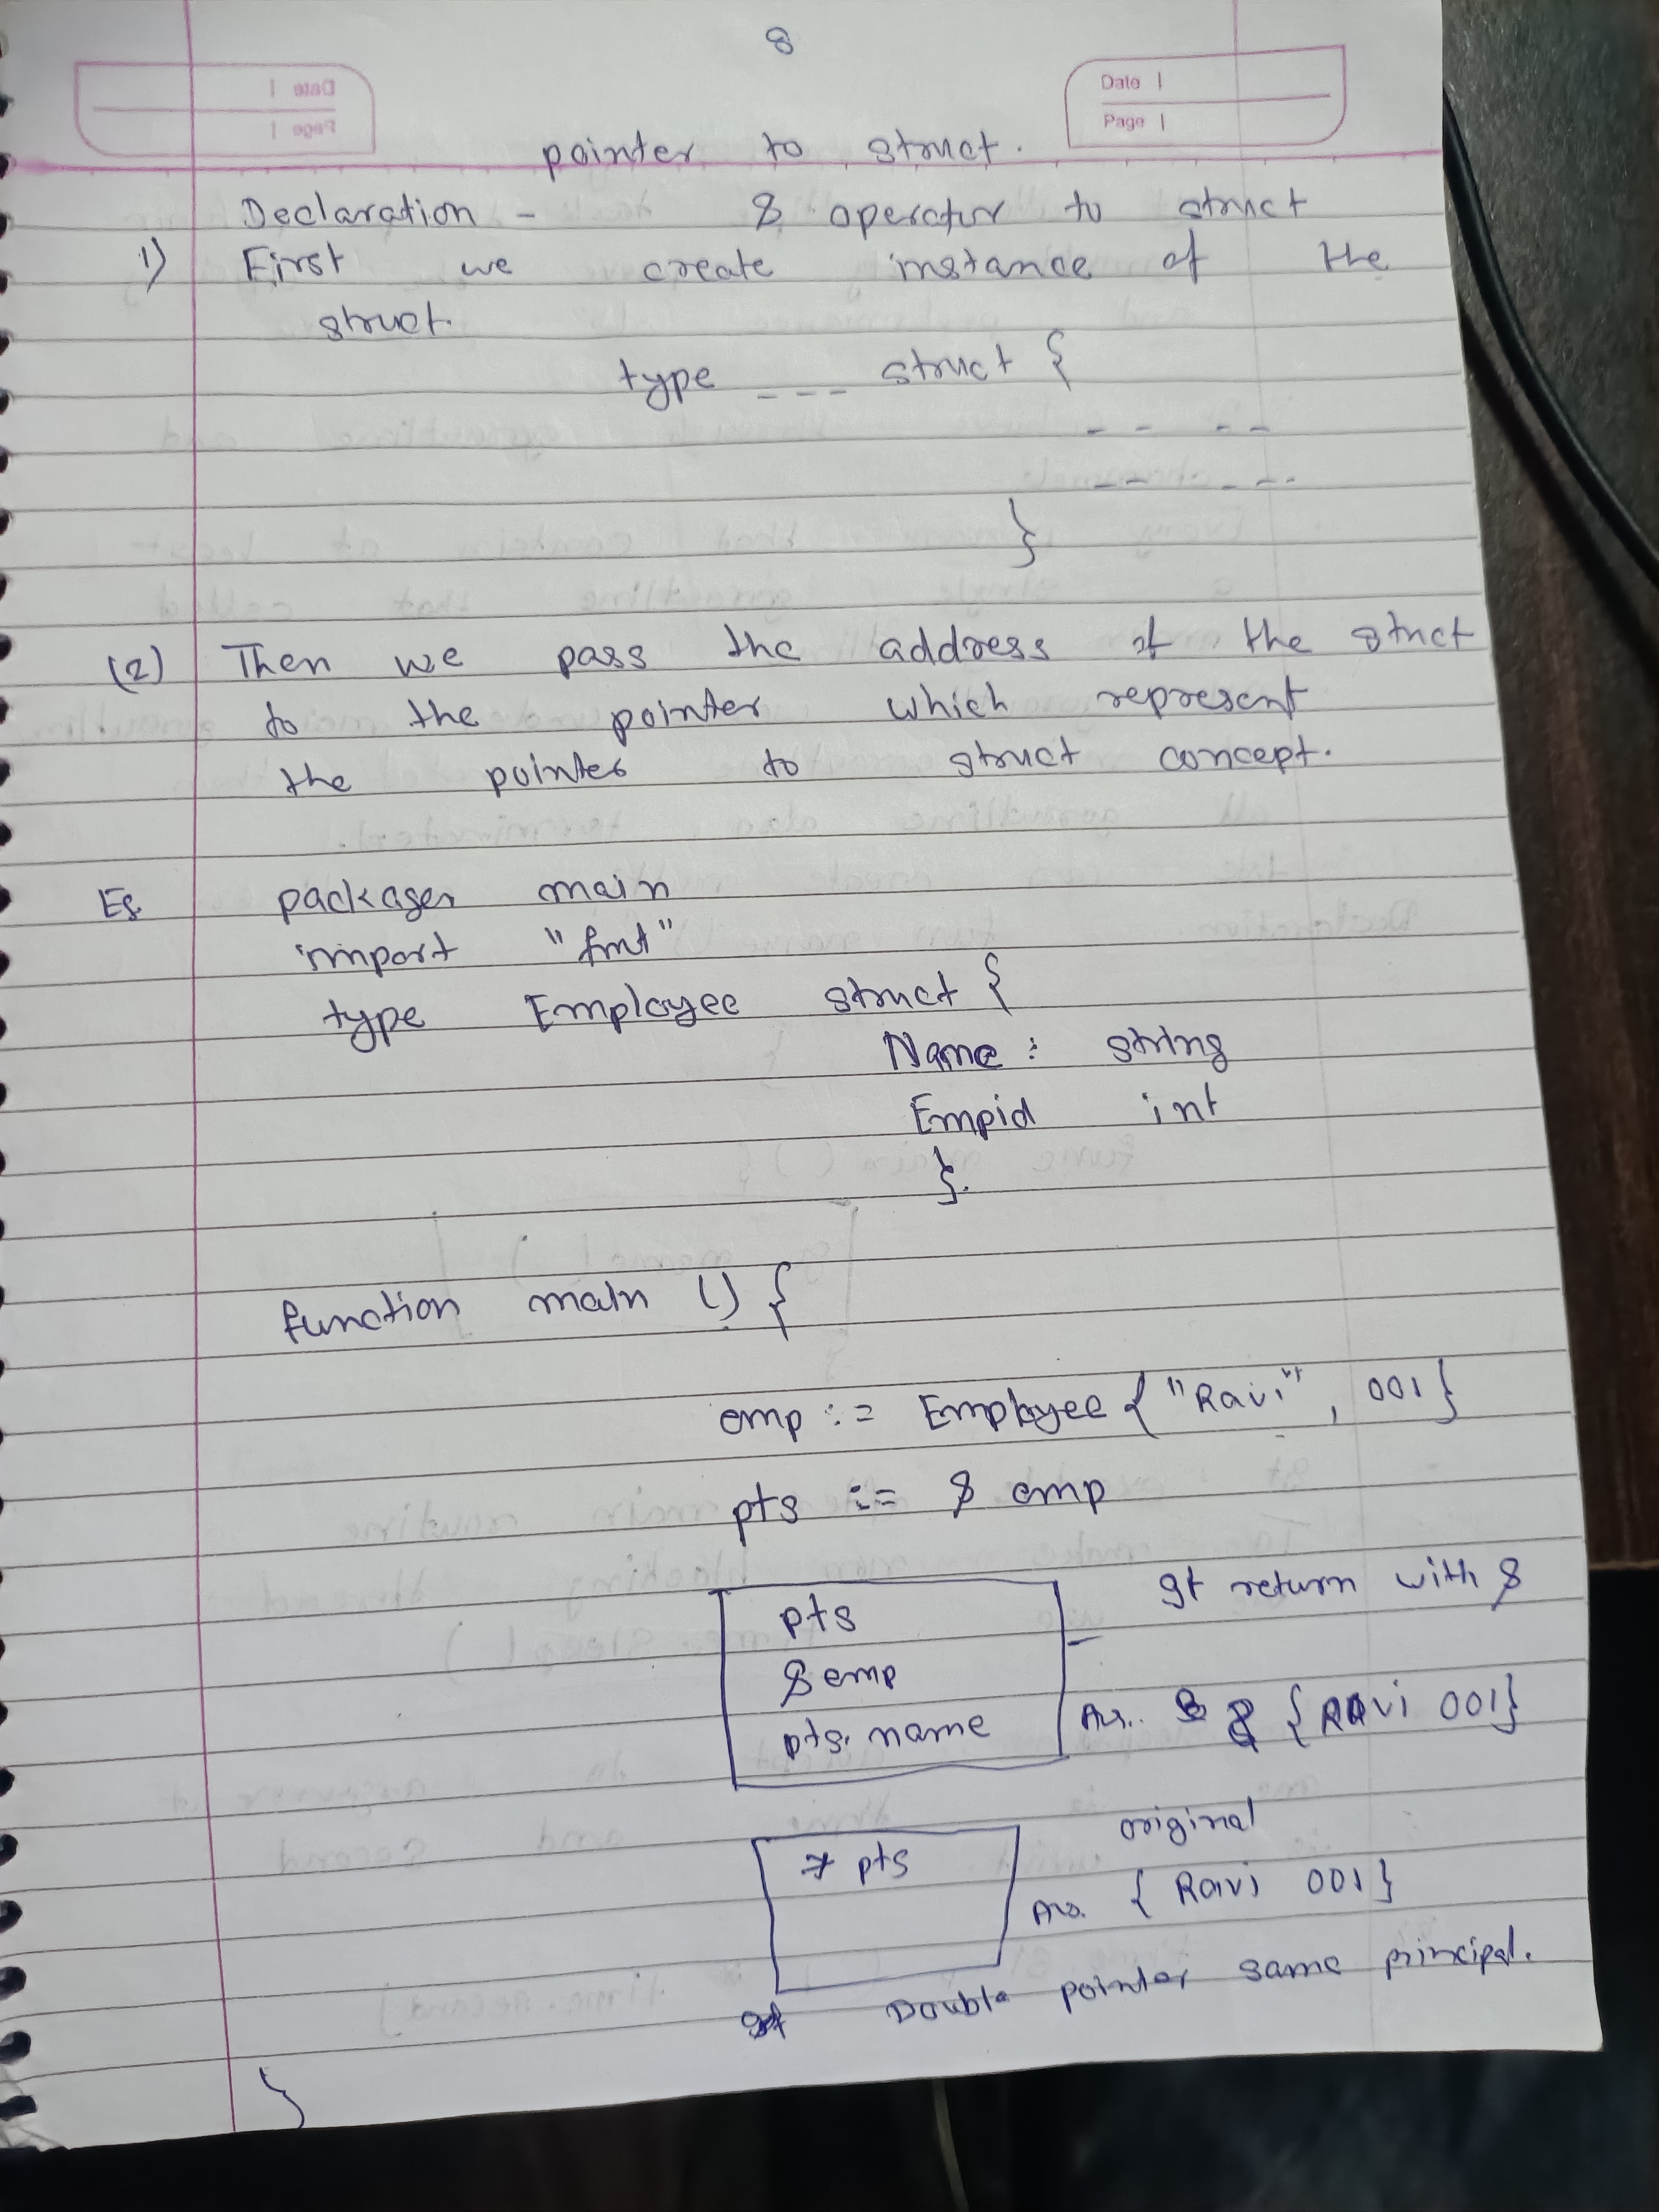 8
Date
Page
pointer to struct.
Declaration - & operator to struct
1) First we create instance of the
struct.
type --- struct {
-- --
-- --
}
(2) Then we pass the address of the struct
to the pointer which represent
the pointer to struct concept.
Eg. packages main
import "fmt"
type Employee struct {
Name : string
Empid int
}.
function main () {
emp := Employee { "Ravi", 001 }
pts := & emp
pts
It return with &
& emp
pts. name
Ans.. & {RAVI 001}
original
* pts
Ans. { Ravi 001 }
Double pointer same principal.
}